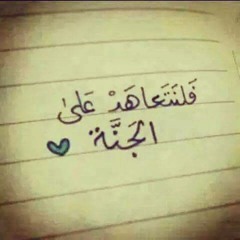 فَلنَتَعاهَدْ عَلىٰ
الجَنَّة